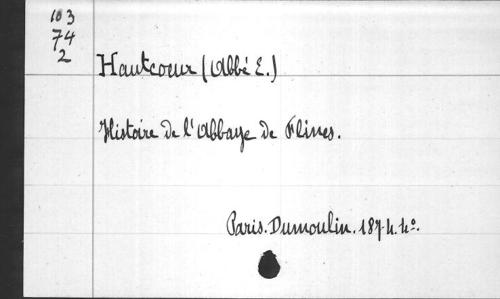 103
74
2
Hautcoeur (Abbé E.)
Histoire de l'Abbaye de Flines.
Paris. Dumoulin. 1874. 4º.